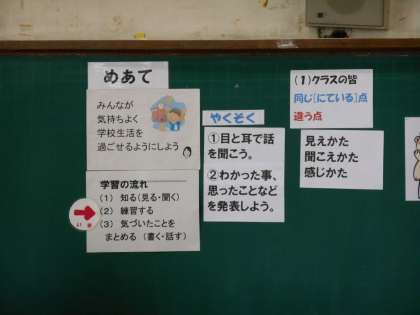 めあて
みんなが
気持ちよく
学校生活を
過ごせるようにしよう
学習の流れ
(1) 知る(見る・聞く)
(2) 練習する
(3) 気づいたことを
まとめる (書く・話す)
やくそく
①目と耳で話
を聞こう。
②わかった事、
思ったことなど
を発表しよう。
(1)クラスの皆
同じ[にている]点
違う点
見えかた
聞こえかた
感じかた